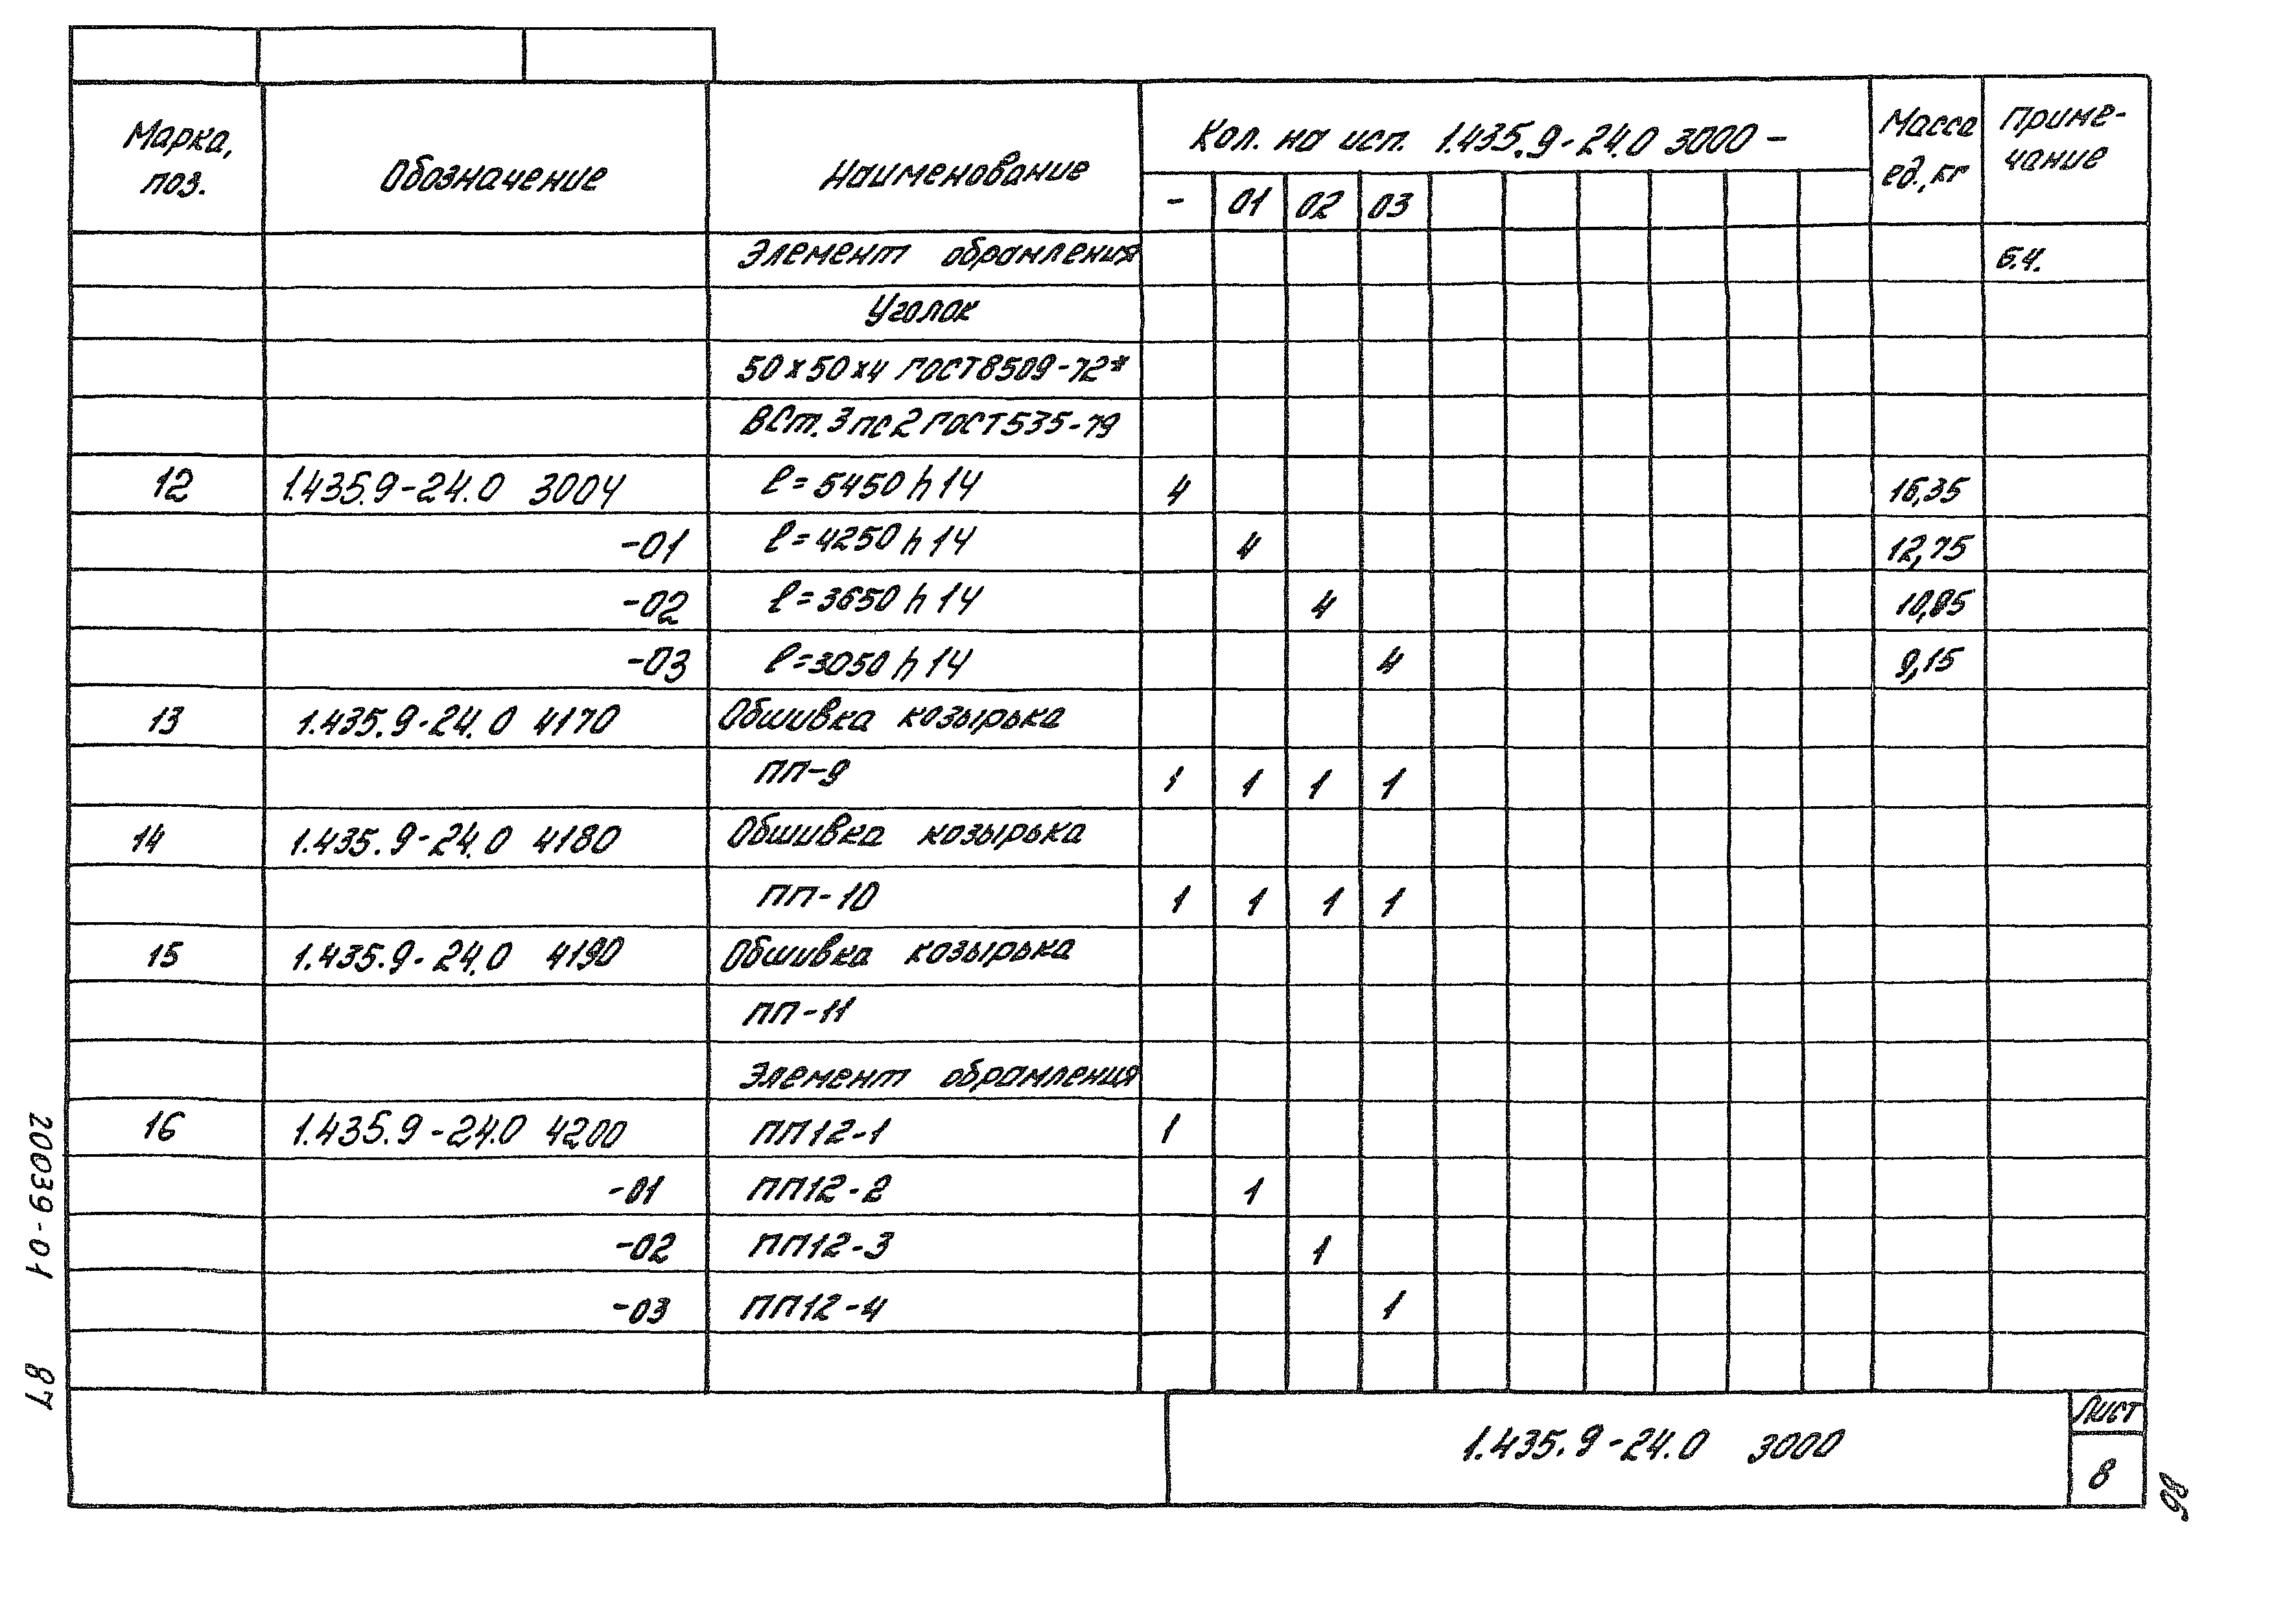 Марка, поз. Обозначение Наименование Кол. на исп. 1.435.9-24.0 3000 - Масса ед., кг Приме-чание
- 01 02 03
Элемент обрамления б.ч.
Уголок
50х50х4 ГОСТ 8509-72*
ВСт.3пс2 ГОСТ 535-79
12 1.435.9-24.0 3004 ℓ=5450 h14 4 16,35
-01 ℓ=4250 h14 4 12,75
-02 ℓ=3650 h14 4 10,85
-03 ℓ=3050 h14 4 9,15
13 1.435.9-24.0 4170 Обшивка козырька
ПП-9 1 1 1 1
14 1.435.9-24.0 4180 Обшивка козырька
ПП-10 1 1 1 1
15 1.435.9-24.0 4190 Обшивка козырька
ПП-11
Элемент обрамления
16 1.435.9-24.0 4200 ПП12-1 1
-01 ПП12-2 1
-02 ПП12-3 1
-03 ПП12-4 1
1.435.9-24.0 3000
Лист
8
20039-01 87
86